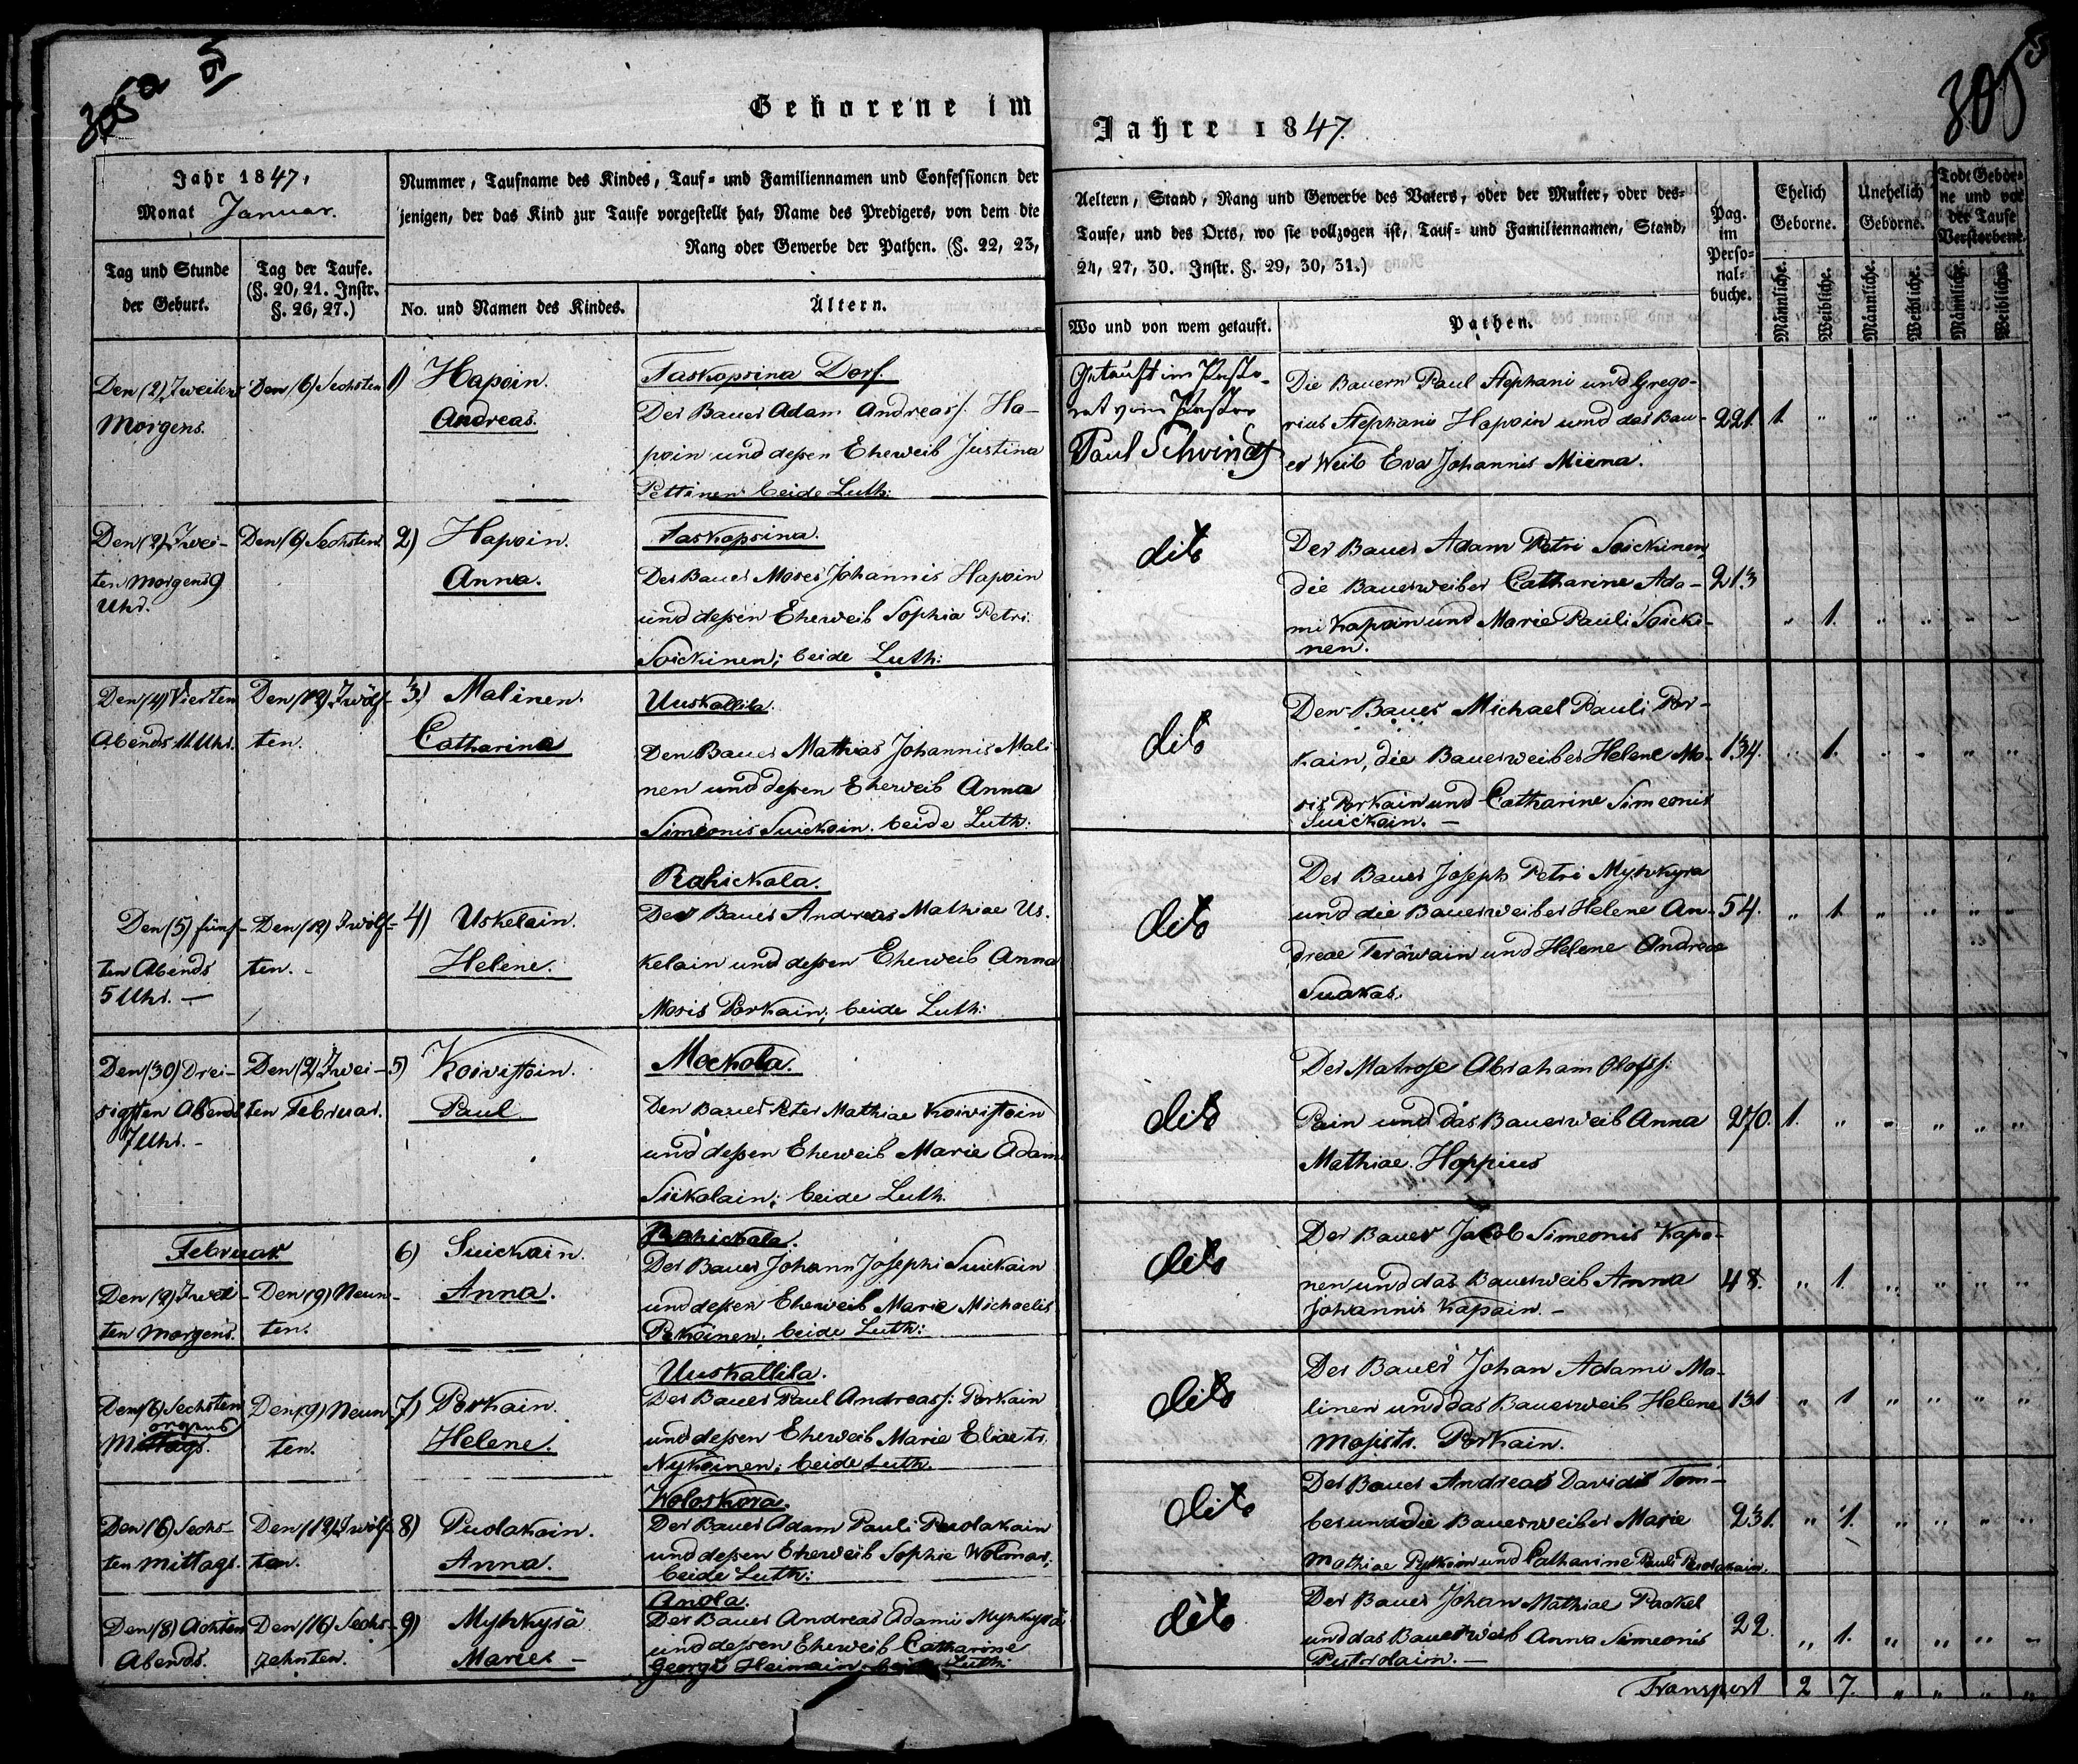 305 a
305
Geborene im
Jahre 1847.
Jahr 1847,
Monat Januar.
Tag und Stunde
der Geburt.
Tag der Taufe.
(§. 20, 21. Instr.
§. 26, 27.)
Nummer, Taufname des Kindes, Tauf- und Familiennamen und Confessionen der
jenigen, der das Kind zur Taufe vorgestellt hat, Name des Predigers, von dem die
Rang oder Gewerbe der Pathen. (§. 22, 23,
No. und Namen des Kindes.
Ältern.
Aeltern, Stand, Rang und Gewerbe des Vaters, oder der Mutter, oder des-
Taufe, und des Orts, wo sie vollzogen ist, Tauf- und Familiennamen, Stand,
24, 27, 30. Instr. §. 29, 30, 31.)
Wo und von wem getauft.
Pathen.
Pag.
im
Perso-
nal-
buche.
Ehelich
Geborne.
Unehelich
Geborne.
Todt Gebor-
ne und vor
der Taufe
Verstorbene.
Männliche.
Weibliche.
Männliche.
Weibliche.
Männliche.
Weibliche.
Den (2) Zweiten
Morgens.
Den (6) Sechsten
1) Hapoin.
Andreas.
Taskoprina Dorf.
Der Bauer Adam Andreasf: Ha-
poin und deßen Eheweib Justina
Pettinen beide Luth:
Getauft im Pasto-
rat vom Pastor
Paul Schvindt
Die Bauern Paul Stephani und Grego-
rius Stephani Hapoin und das Bau-
er Weib Eva Johannis Miina.
221. 1. " " " " "
Den (2) Zwei-
ten Morgens 9
Uhr.
Den (6) Sechsten.
2) Hapoin.
Anna.
Taskoprina.
Der Bauer Moses Johannis Hapoin
und deßen Eheweib Sophia Petri
Soickinen; beide Luth:
dito
Der Bauer Adam Petri Soickinen
die Bauerweiber Catharine Ada-
mi Hapoin und Marie Pauli Soicki-
nen.
213 " 1. " " " "
Den (4) Vierten
Abends 11 Uhr.
Den (12) Zwölf-
ten.
3) Malinen.
Catharina
Uuskallila.
Den Bauer Mathias Johannis Mali
nen und deßen Eheweib Anna
Simeonis Suickain. beide Luth:
dito
Den Bauer Michael Pauli Por-
kain, die Bauerweiber Helene Mo-
sis Porkain und Catharine Simeonis
Suickain. —
134. " 1. " " " "
Den (5) fünf-
ten Abends
5 Uhr. —
Den (12) Zwölf-
ten. -
4) Uskelain.
Helene.
Rahickala.
Der Bauer Andreas Mathiae Us.
kelain und deßen Eheweib Anna
Mosis Porkain; beide Luth:
dito
Der Bauer Joseph Petri Myhkyra
und die Bauerweiber Helene An-
dreae Teräwain und Helene Andreae
Suakas.
54. " 1. " " " "
Den (30) Drei-
sigsten Abends
7 Uhr. -
Den (2) Zwei-
ten Februar.
5) Koivistoin.
Paul
Mockola.
Den Bauer Peter Mathiae Koivistoin
und deßen Eheweib Marie Adam
Siikalain; beide Luth.
dito
Der Matrose Abraham Olofsf:
Pain und das Bauerweib Anna
Mathiae Hoppius
270. 1. " " " " "
Februar
Den (2) Zwei-
ten Morgens.
Den (9) Neun-
ten.
6) Suickain.
Anna.
Rahickala.
Der Bauer Johann Josephi Suickain
und deßen Eheweib Marie Michaelis
Pekoinen; beide Luth:
dito
Der Bauer Jacob Simeonis Kapo-
nen und das Bauerweib Anna
Johannis Kapain. -
48. " 1. " " " "
Den (6) Sechsten
orgens
Mittags.
Den (9) Neun-
ten.
7) Porkain.
Helene.
Uuskallila.
Der Bauer Paul Andreasf: Porkain
und deßen Eheweib Marie Eliae tr.
Nykoinen; beide Luth.
dito
Der Bauer Johan Adami Ma-
linen und das Bauerweib Helene
Mosistr. Porkain.
131 " 1 " " " "
Den (6) Sechs-
ten Mittags.
Den (12) Zwölf-
ten.
8) Puolakain.
Anna.
Woloskora.
Der Bauer Adam Pauli Puolakain
und deßen Eheweib Sophie Wolmar;
beide Luth:
dito
Der Bauer Andreas Davidis Tom-
ber und die Bauerweiber Marie
Mathiae Pykoin und Catharine Pauli Puolakain.
231. " 1. " " " "
Den (8) Achten
Abends.
Den (16) Sechs-
zehnten.
9) Myhkyrä
Marie. —
Anola.
Der Bauer Andreas Adami Myhkyrä
und deßen Eheweib Catharine
Georgi Heimain. beide Luth:
dito
Der Bauer Johan Mathiae Packel
und das Bauerweib Anna Simeonis
Putrolain. —
22. " 1. " " " "
Transport 2 7. " " " "